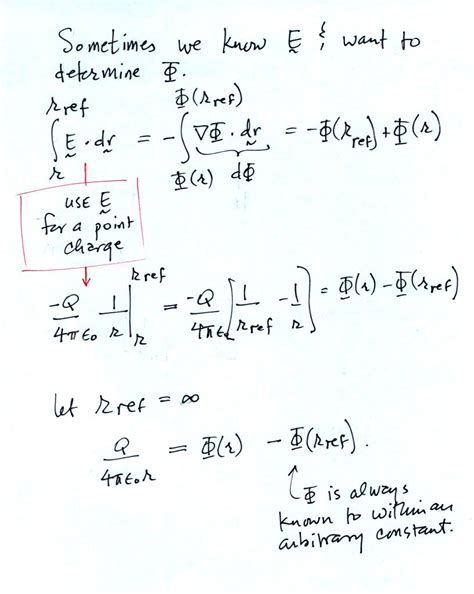 Sometimes we know E & want to
determine Φ.
∫_r^{r ref} E · dr = -∫_{Φ(r)}^{Φ(r ref)} ∇Φ · dr = -Φ(r ref) + Φ(r)
dΦ
USE E
for a point
charge
-Q/4πε0 1/r |_r^{r ref} = -Q/4πε0 [1/r ref - 1/r] = Φ(r) - Φ(r ref)
let r ref = ∞
Q/4πε0r = Φ(r) - Φ(r ref).
Φ is always
known to within an
arbitrary constant.